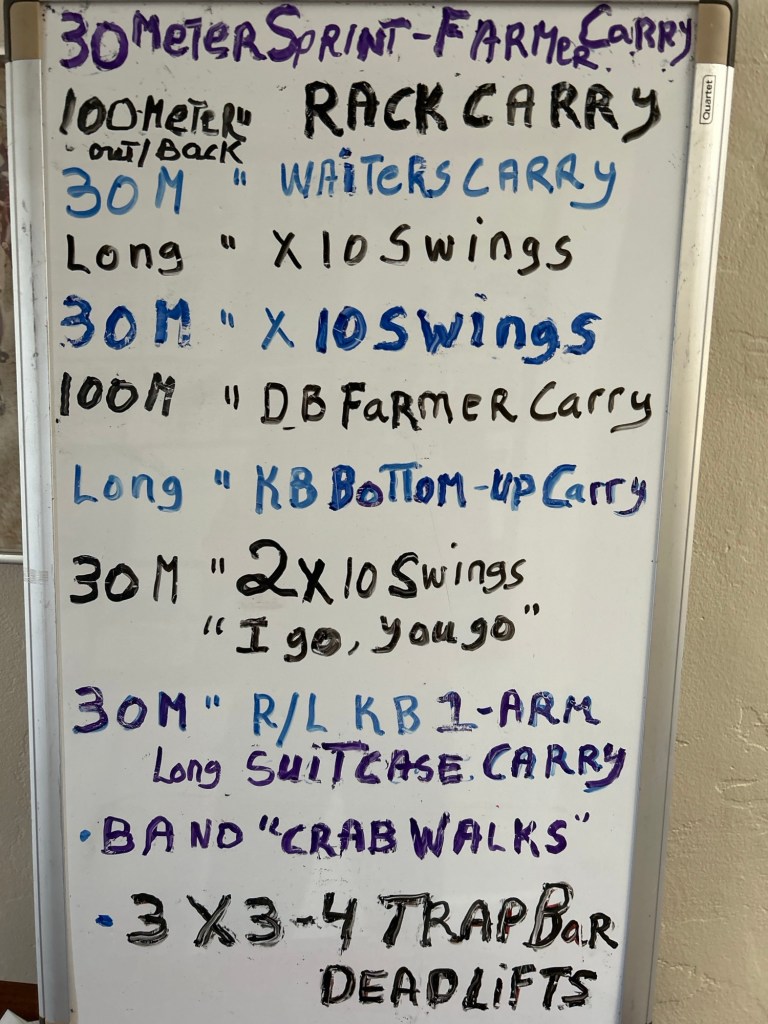 30 METER SPRINT - FARMER CARRY
100 METER " RACK CARRY
out/BACK
30M " WAITERS CARRY
Long " X 10 Swings
30M " X 10 Swings
100M " DB FARMER Carry
Long " KB BOTTOM-UP Carry
30M " 2X10 Swings
"I go, you go"
30M " R/L KB 1-ARM
Long SUITCASE CARRY
• BAND "CRAB WALKS"
• 3 X 3-4 TRAP BaR
DEADLiFTS
Quartet